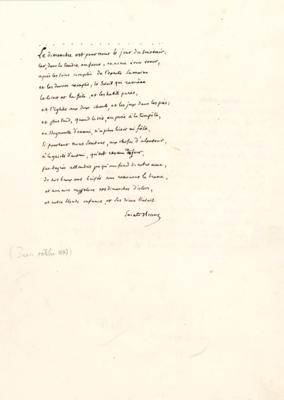 Le dimanche est pour nous le jour du souvenir;
car, dans la tendre enfance, on aime à voir venir,
après les soins comptés de l'exacte semaine
et les devoirs remplis, le soleil qui ramène
le loisir et la fête, et les habits parés,
et l'église aux doux chants, et les jeux dans les prés;
et plus tard, quand la vie, en proie à la tempête,
ou stagnante d'ennui, n'a plus loisir ni fête,
Si pourtant nous sentons, aux choses d'alentour,
à la gaité d'autrui, qu'est revenu ce jour,
par degrés attendris jusqu'au fond de notre âme,
de nos beaux ans brisés nous renouons la trame,
et nous nous rappelons nos dimanches d'alors,
et notre blonde enfance, et
Sainte-Beuve